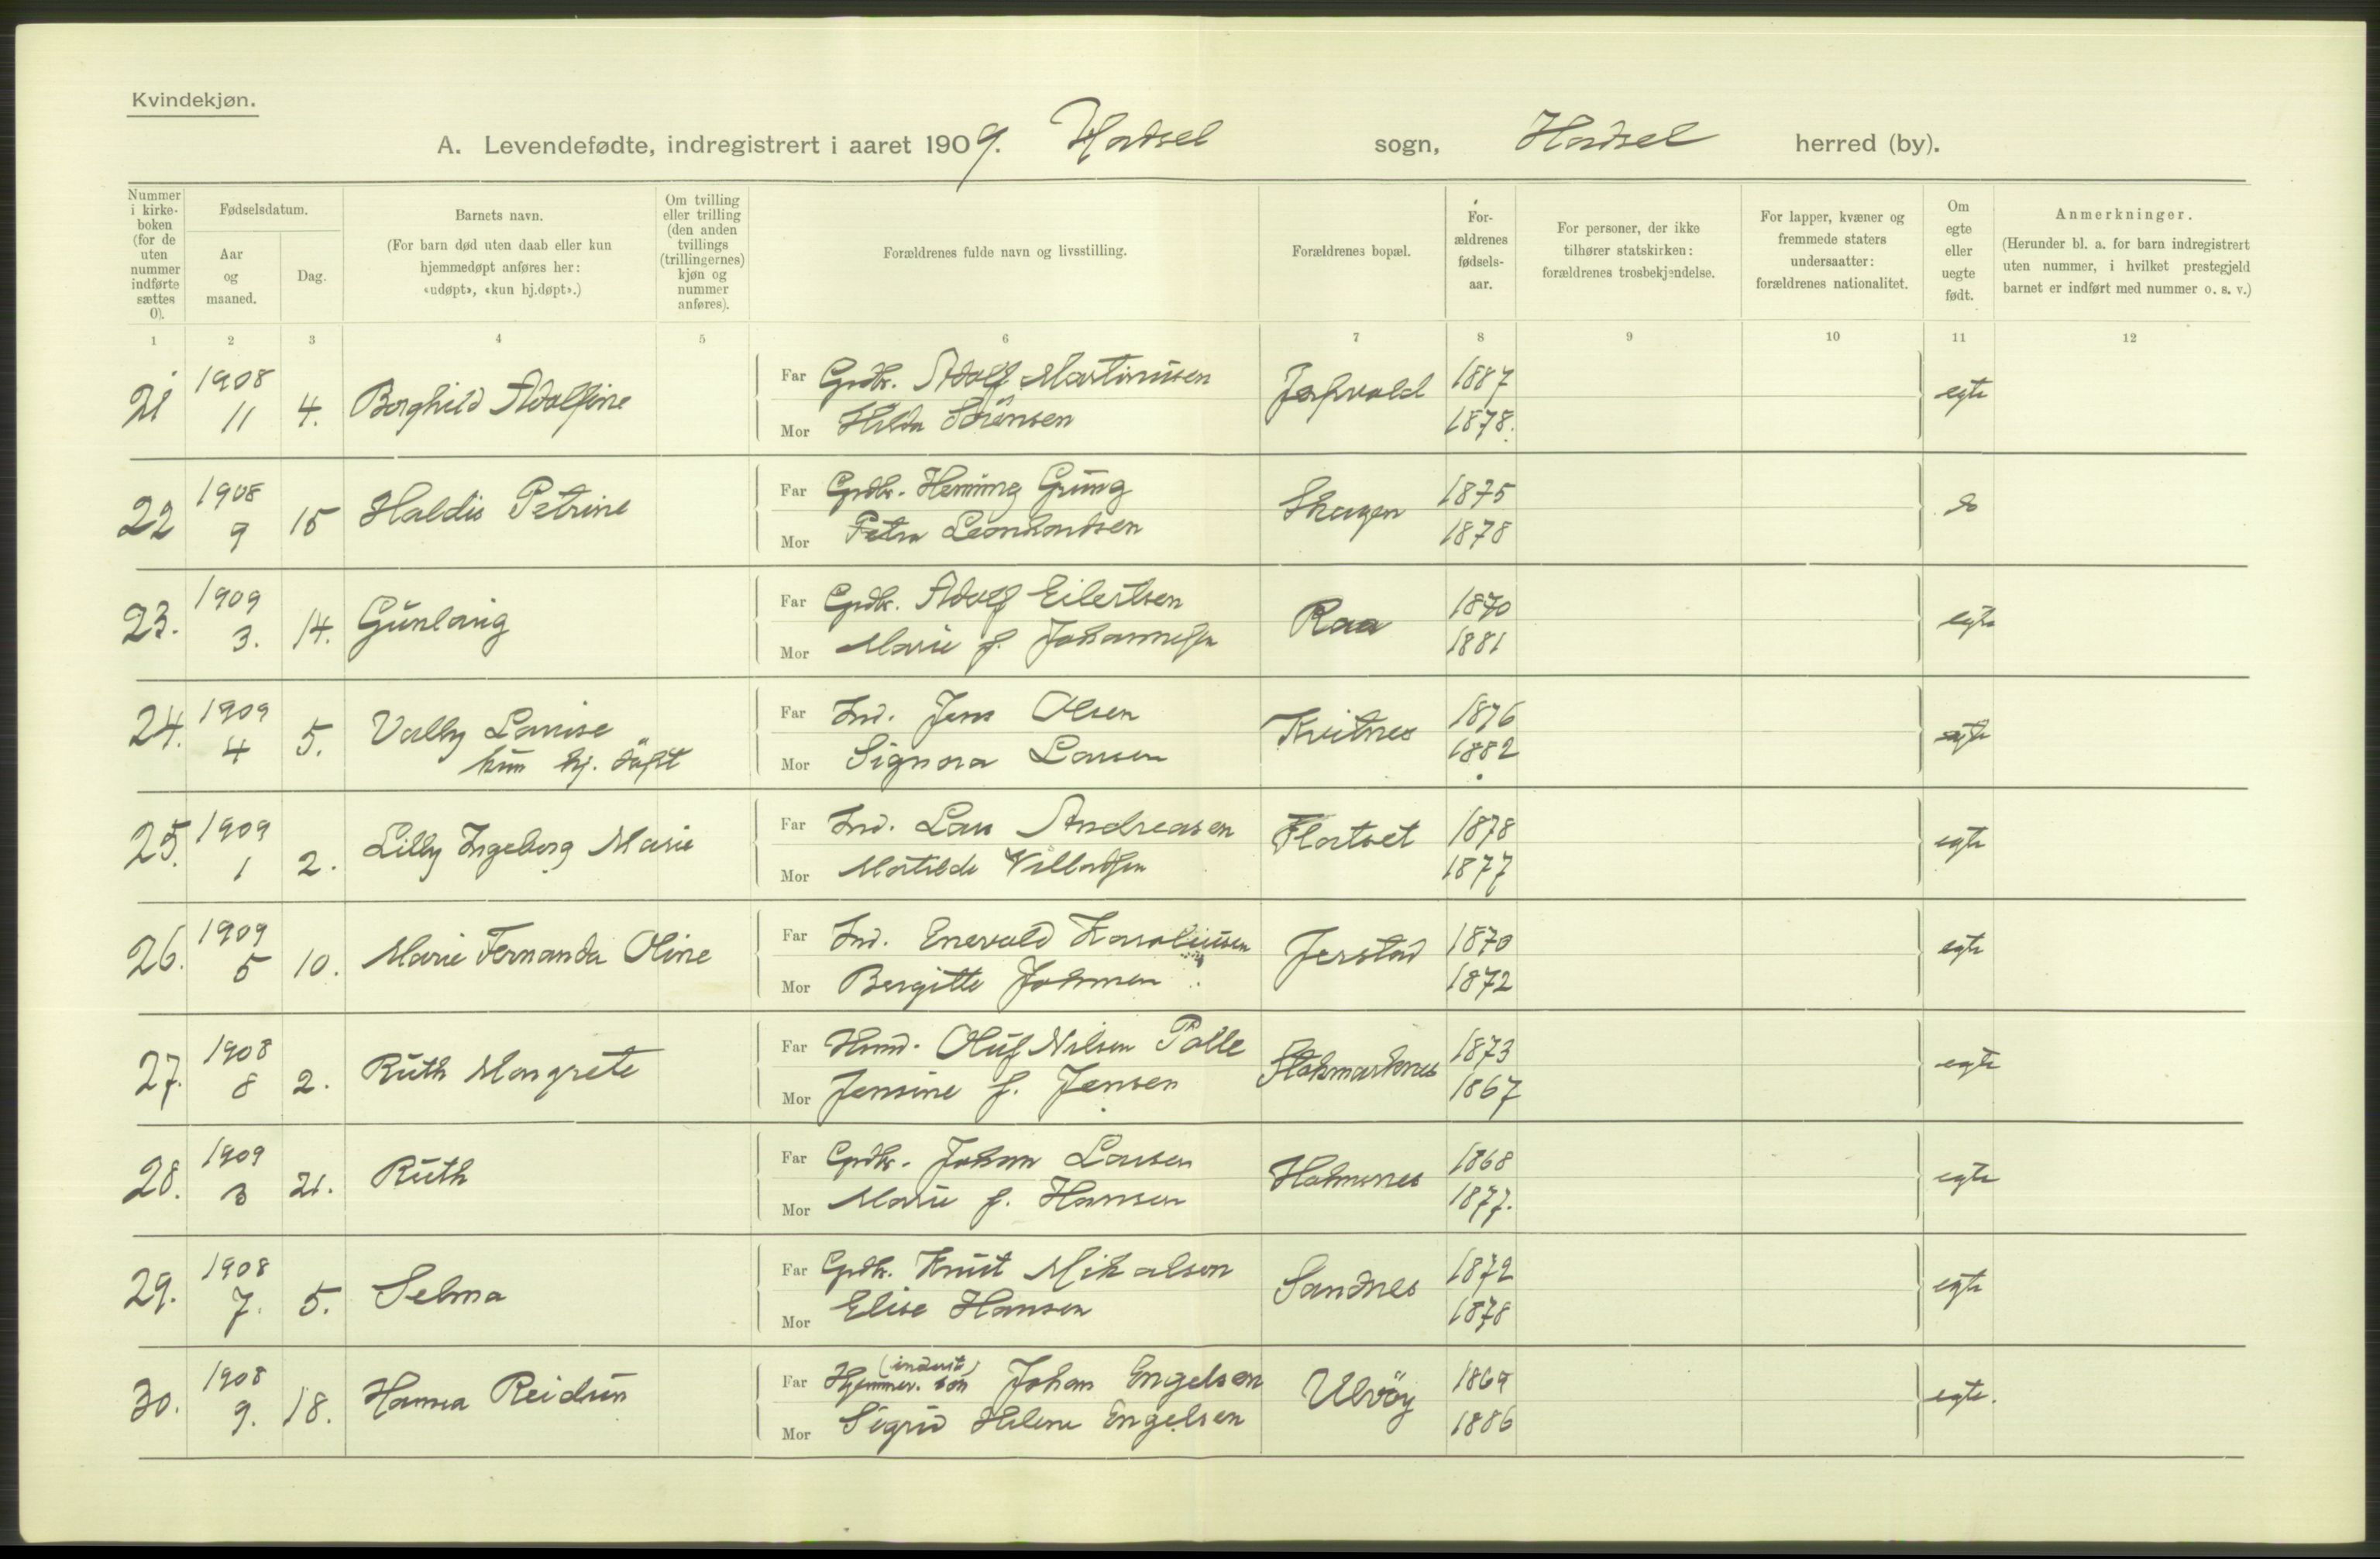 Kvindekjøn.
A. Levendefødte, indregistrert i aaret 1909. Hadsel sogn, Hadsel herred (by).
Nummer i kirkeboken (for de uten nummer indførte sættes 0).
Fødselsdatum.
Aar og maaned.
Dag.
Barnets navn.
(For barn død uten daab eller kun hjemmedøpt anføres her: «udøpt», «kun hj.døpt».)
Om tvilling eller trilling (den anden tvillings (trillingernes) kjøn og nummer anføres).
Forældrenes fulde navn og livsstilling.
Forældrenes bopæl.
Forældrenes fødselsaar.
For personer, der ikke tilhører statskirken: forældrenes trosbekjendelse.
For lapper, kvæner og fremmede staters undersaatter: forældrenes nationalitet.
Om egte eller uegte født.
Anmerkninger.
(Herunder bl. a. for barn indregistrert uten nummer, i hvilket prestegjeld barnet er indført med nummer o. s. v.)
1 2 3 4 5 6 7 8 9 10 11 12
21 1908 11 4. Borghild Adolfine
Far Grdbr. Adolf Martinusen 1887 egte
Mor Hilda Sörensen 1878.
22 1908 9 15 Haldis Petrine
Far Grdbr. Henning Grung Skagen 1875 do
Mor Petra Leonhardsen 1878
23. 1909 3. 14. Gunlaug
Far Grdbr. Adolf Eilertsen Raa 1870 egte
Mor Marie f. Johannessen 1881
24. 1909 4 5. Valby Lovise kun hj. döpt
Far Ind. Jens Olsen Kvitnes 1876 egte
Mor Signora Larsen 1882
25. 1909 1 2. Lilly Ingeborg Marie
Far Ind. Lau Andreasen Flatset 1878 egte
Mor Matilde Villadsen 1877
26. 1909 5 10. Marie Fernanda Oline
Far Ind. Enevald Karoliusen Jerstad 1870 egte
Mor Bergitte Johnsen 1872
27. 1908 8 2. Ruth Margrete
Far Hand. Oluf Nilsen Polle Stokmarknes 1873 egte
Mor Jensine f. Jensen 1867
28. 1909 3 21. Ruth
Far Grdbr. Johan Larsen Holmsnes 1868 egte
Mor Marie f. Hansen 1877.
29. 1908 7. 5. Selma
Far Grdbr. Knut Mikalsen Sandnes 1872 egte
Mor Elise Hansen 1878
30. 1908 9. 18. Hanna Reidun
Far Hjemmev. sön (inderst) Johan Engelsen Ulvöy 1869 egte.
Mor Sigrid Helene Engelsen 1886